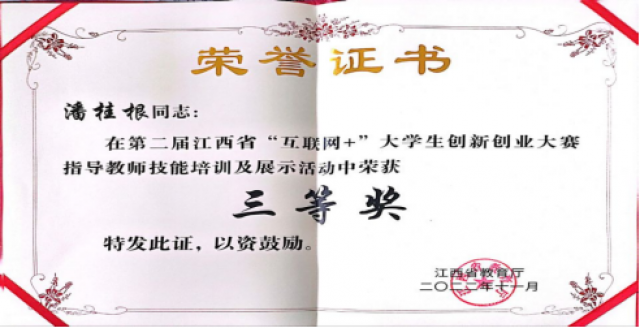 荣誉证书
潘桂根同志：
在第二届江西省“互联网+”大学生创新创业大赛
指导教师技能培训及展示活动中荣获
三等奖
特发此证，以资鼓励。
江西省教育厅
二〇二二年十一月